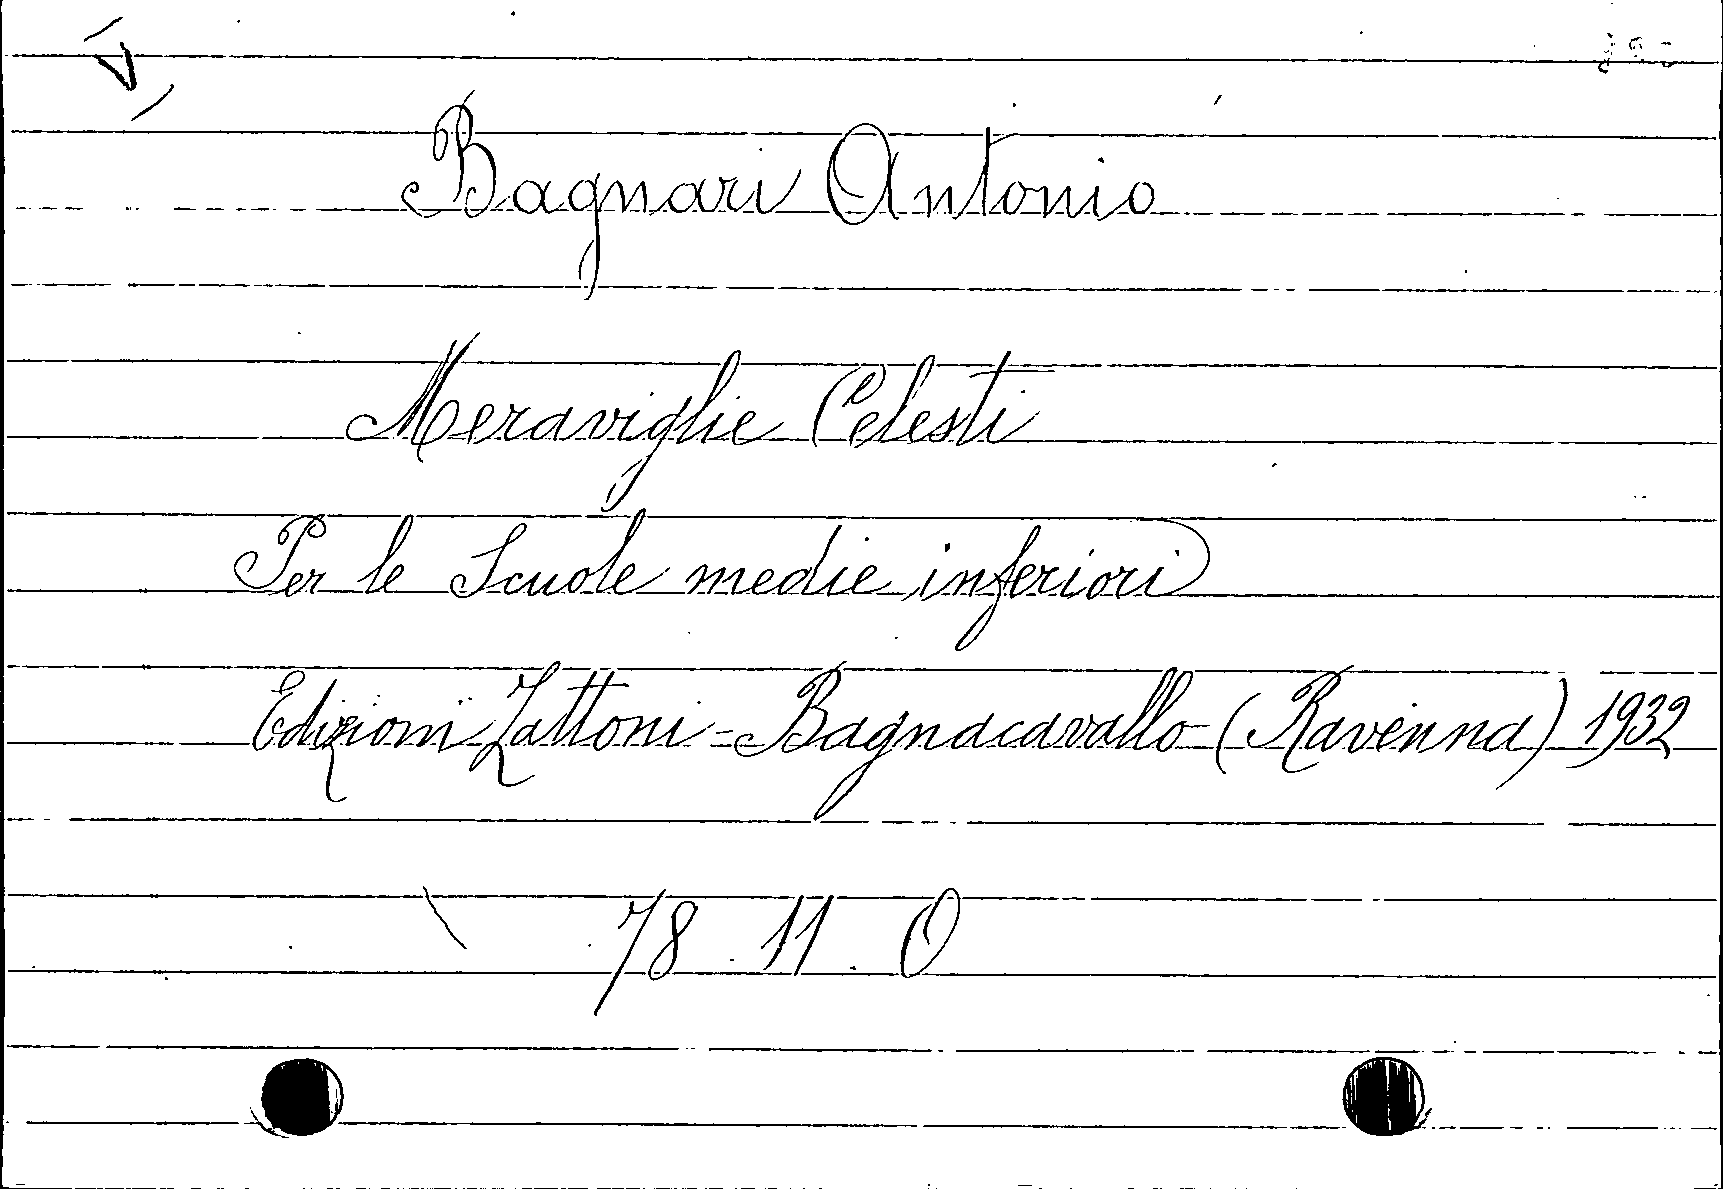 Bagnari Antonio
Meraviglie Celesti
Per le Scuole medie inferiori
Edizioni Zattoni - Bagnacavallo (Ravenna) 1932
78. 11. O